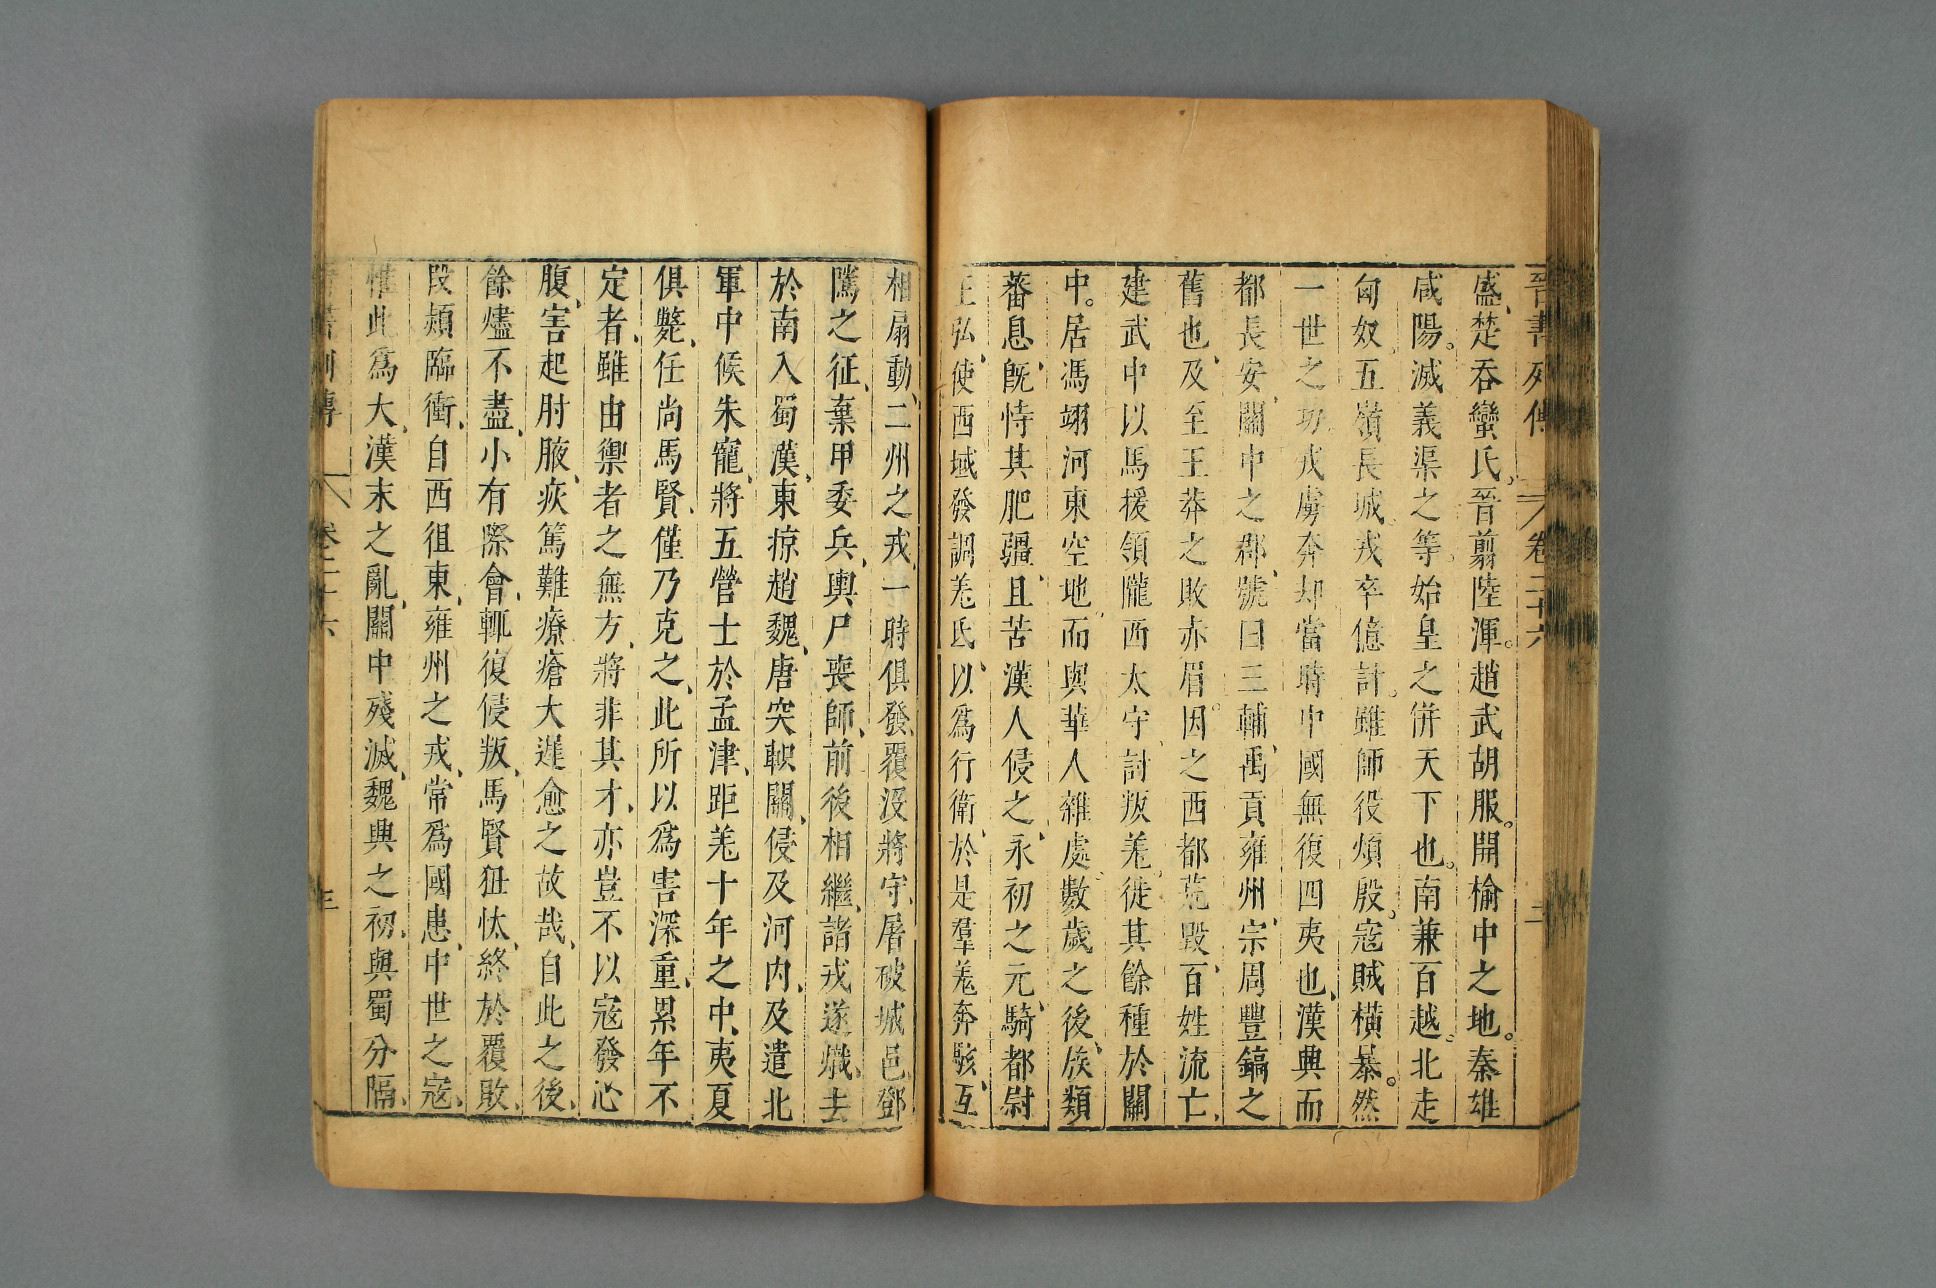 晉書列傳 卷二十六 二
盛、楚吞蠻氏、晉翦陸渾。趙武胡服。開榆中之地。秦雄
咸陽。滅義渠之等。始皇之併天下也。南兼百越。北走
匈奴。五嶺長城。戎卒億計。雖師役煩殷。寇賊橫暴。然
一世之功。戎虜奔却。當時中國無復四夷也、漢興而
都長安、關中之郡、號曰三輔、禹貢雍州、宗周豐鎬之
舊也、及至王莽之敗、赤眉因之。西都荒毀、百姓流亡、
建武中以馬援領隴西太守、討叛羌、徙其餘種於關
中。居馮翊河東空地。而與華人雜處、數歲之後、族類
蕃息、旣恃其肥疆、且苦漢人侵之、永初之元、騎都尉
王弘、使西域發調羌氏、以爲行衛、於是羣羌奔駭、互
相扇動、二州之戎、一時俱發、覆沒將守、屠破城邑、鄧
騭之征、棄甲委兵、輿尸喪師、前後相繼、諸戎遂熾、去
於南入蜀漢、東掠趙魏、唐突軹關、侵及河内、及遣北
軍中候朱寵、將五營士於孟津、距羌十年之中、夷夏
俱斃、任尚馬賢、僅乃克之、此所以爲害深重、累年不
定者、雖由禦者之無方、將非其才、亦豈不以寇發心
腹、害起肘腋、疢篤難療、瘡大遲愈之故哉、自此之後、
餘燼不盡、小有際會、輒復侵叛、馬賢狃忲、終於覆敗、
段熲臨衝、自西徂東、雍州之戎、常爲國患、中世之寇、
惟此爲大、漢末之亂、關中殘滅、魏興之初、與蜀分隔、
晉書列傳 卷二十六 三